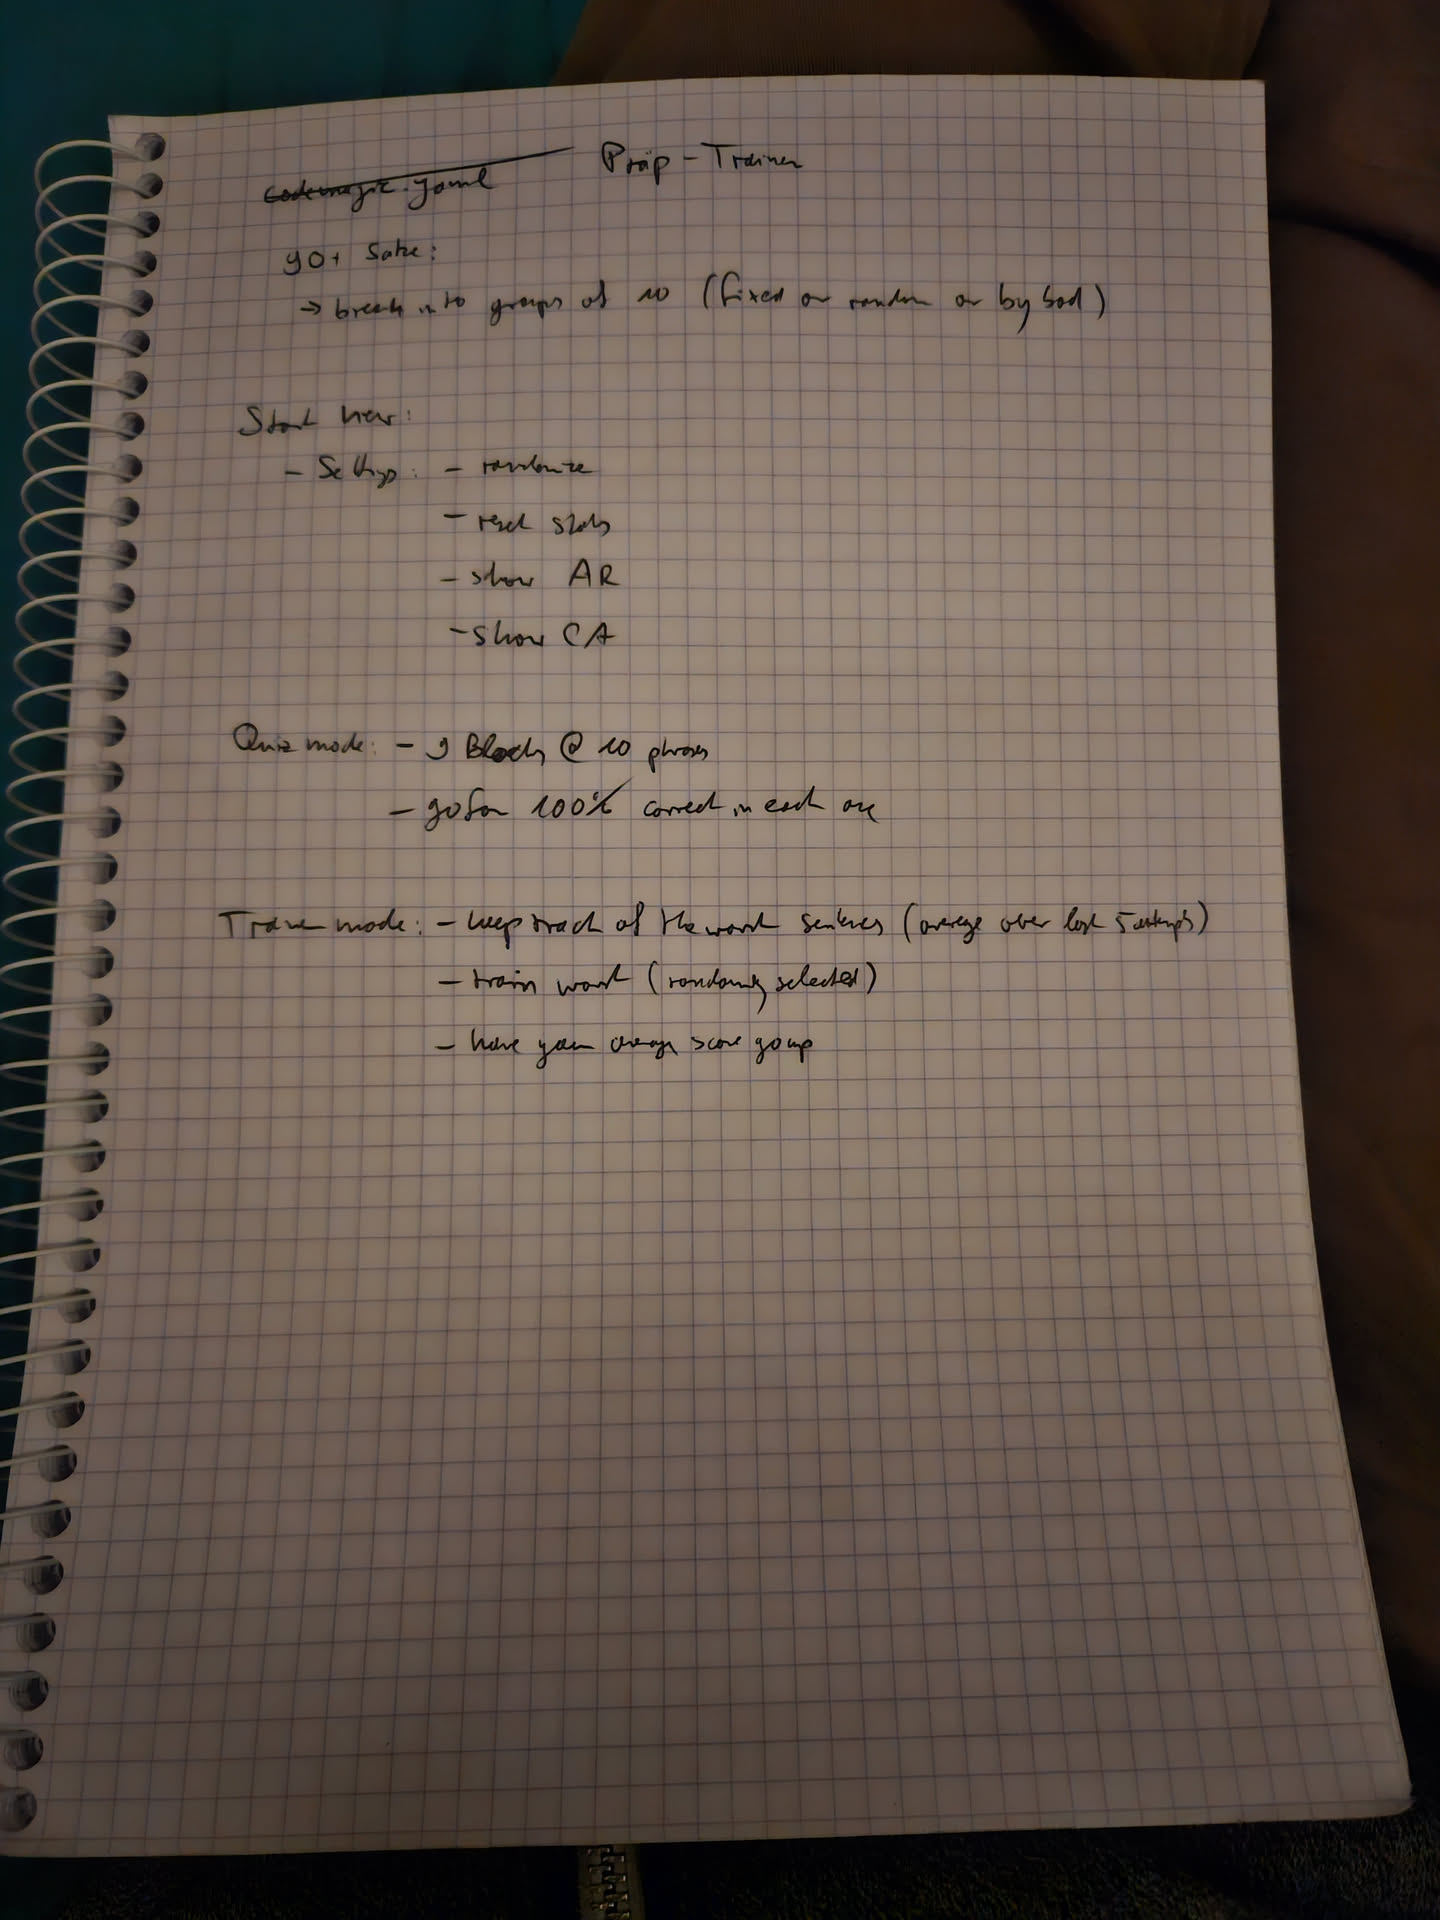 codemagic.yaml
Präp-Trainer
90+ Sätze:
→ break into groups of 10 (fixed or random or by bad)
Start View:
- Settings: - randomize
- reset stats
- show AR
- show CA
Quiz mode: - 9 Blocks @ 10 phrases
- go for 100% correct in each one
Trainer mode: - keep track of the worst sentences (average over last 5 attempts)
- train worst (randomly selected)
- have your average score go up